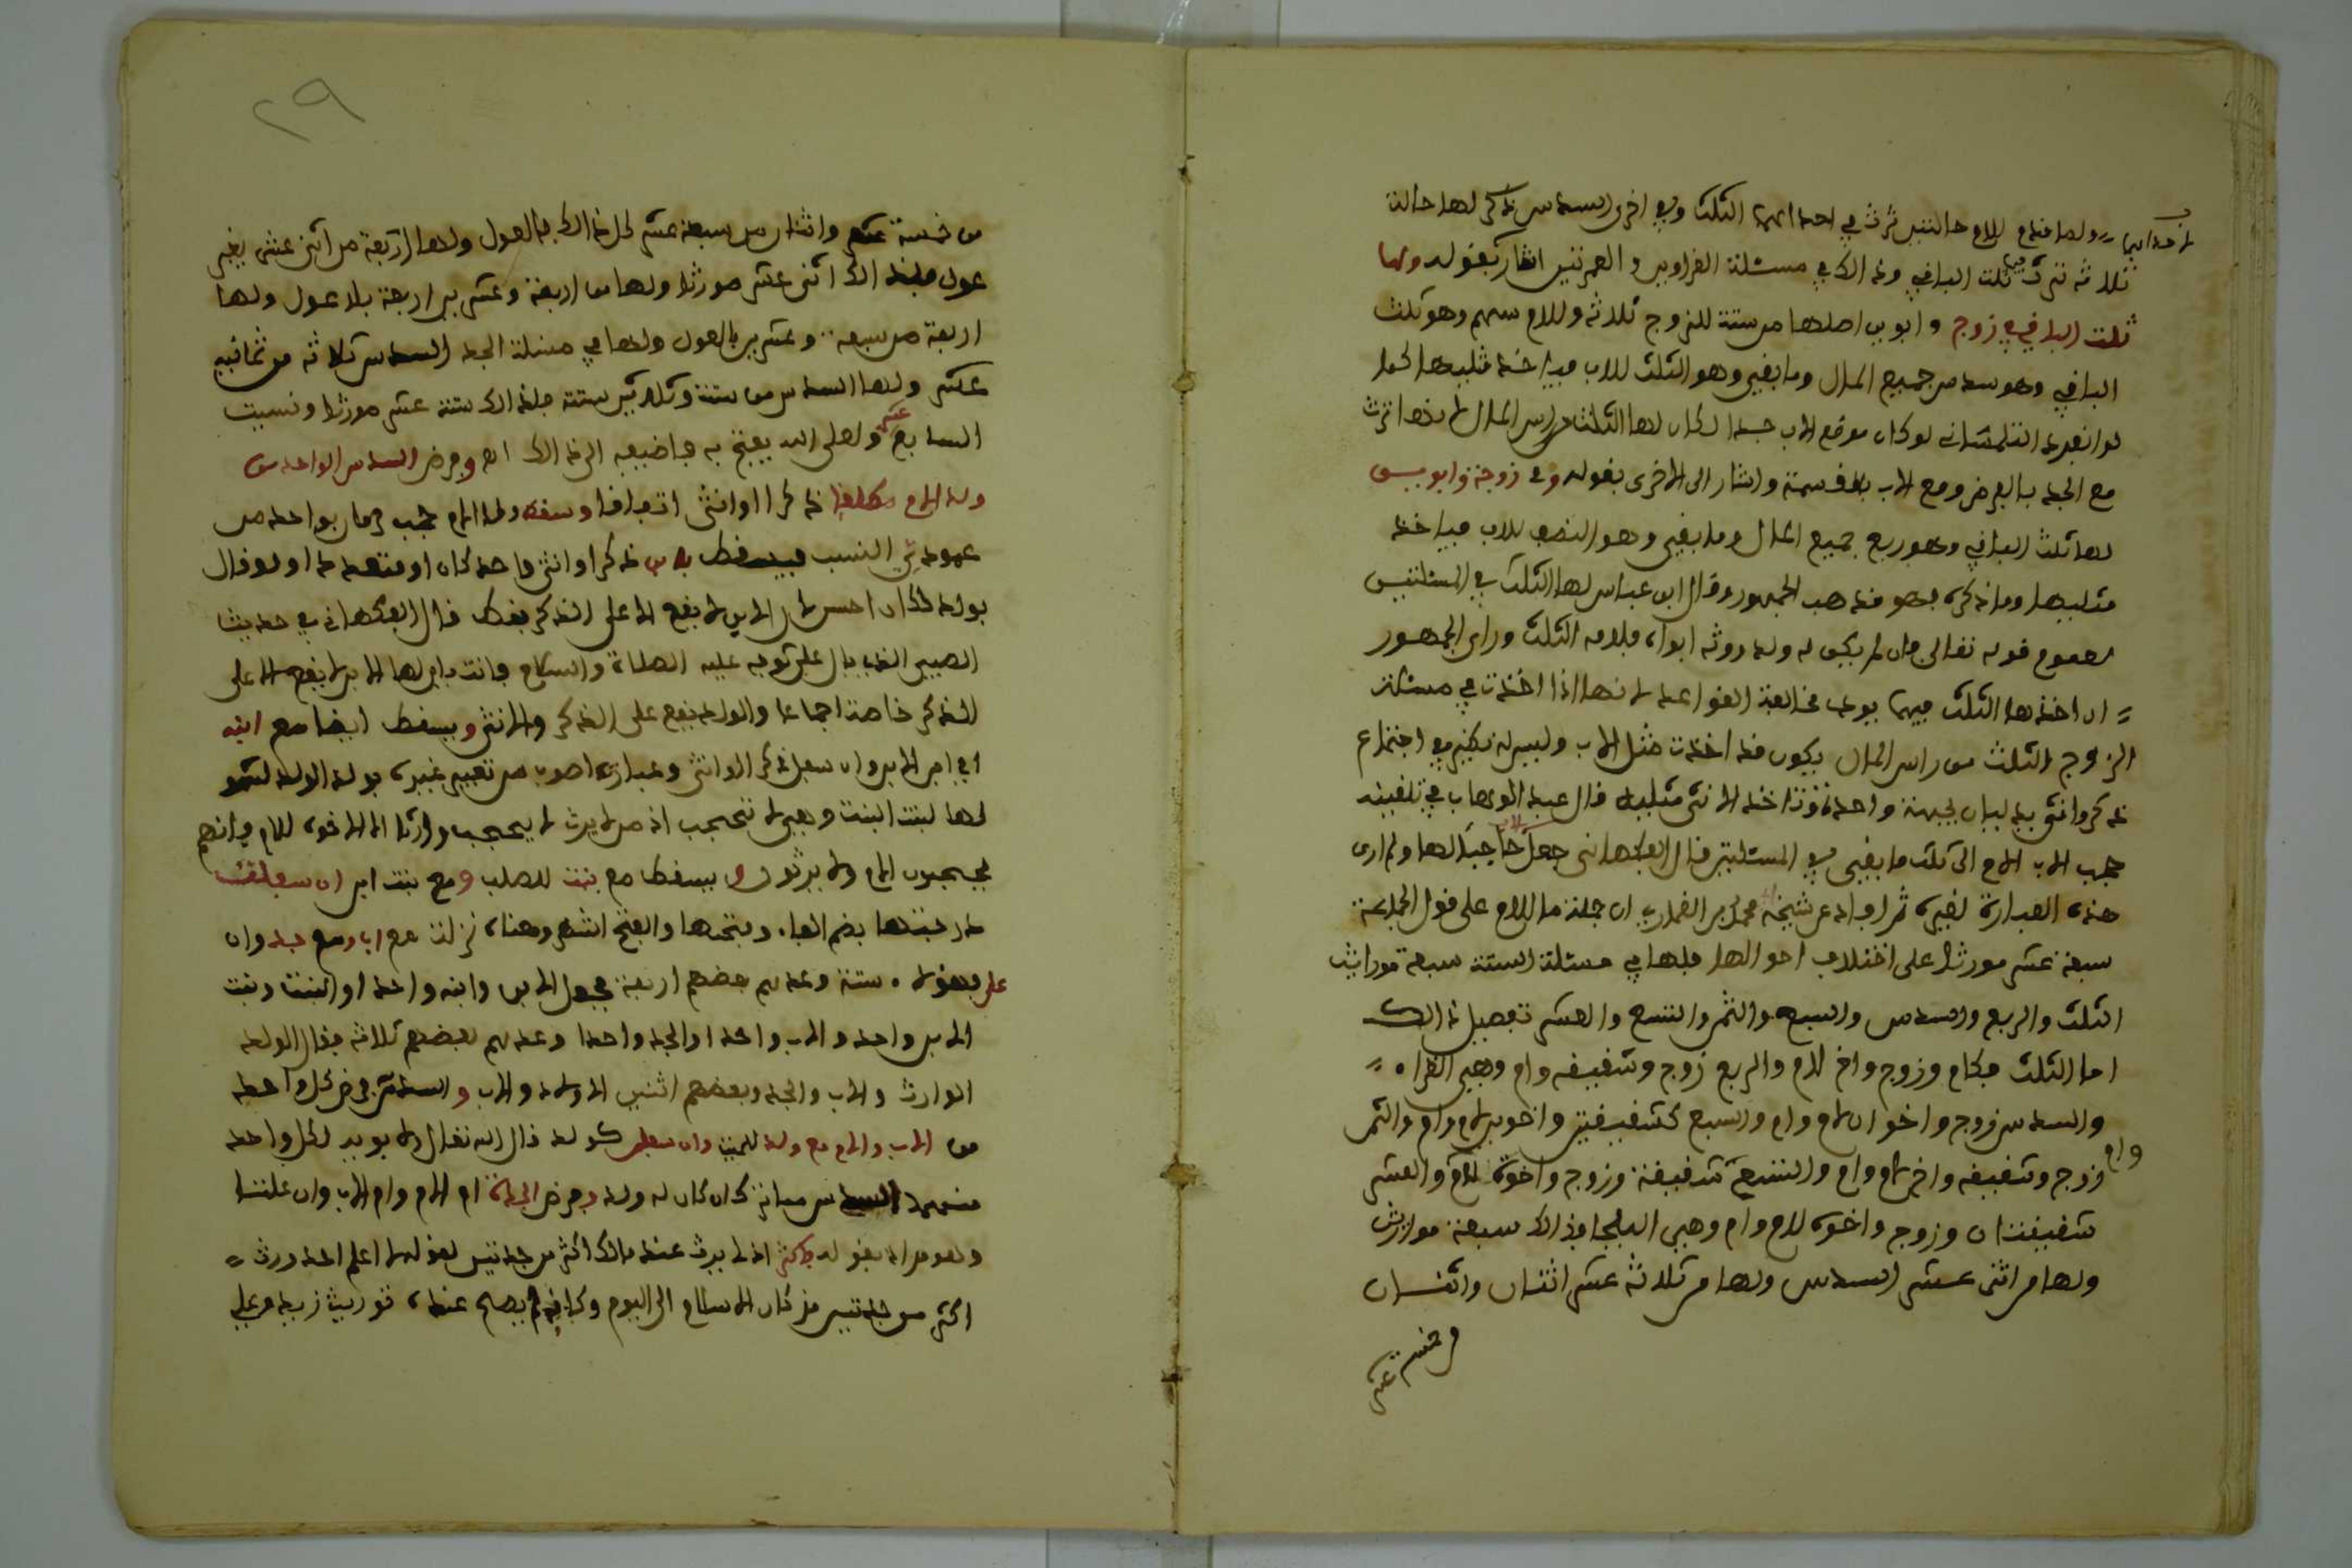 ولما قدم للام حالتين ترث في احداهما الثلث وفي اخرى السدس ذكر لها حالة
ثلاثة ترث فيها ثلث الباقي وذالك في مسئلة الغراوين و العمرتين اشار بقوله ولها
ثلث الباقي في زوج و ابوين اصلها من ستة للزوج ثلاثة وللام سهم وهو ثلث
الباقي وهو سدس جميع المال وما بقي وهو الثلث للاب فياخذ مثليها كما
لو انفرد التلمساني لو كان موضع الاب جدا لكان لها الثلث من راس المال لانها ترث
مع الجد بالفرض ومع الاب بالقسمة واشار الى الاخرى بقوله وفي زوجة وابوين
لها ثلث الباقي وهو ربع جميع المال وما بقي وهو النصف للاب فياخذ
مثليها وما ذكره هو مذهب الجمهور وقال ابن عباس لها الثلث في المسئلتين
لعموم قوله تعالى فان لم يكن له ولد وورثه ابواه فلامه الثلث وراى الجمهور
ان اخذها الثلث فيهما يودي مخالفة القواعد لانها اذا اخذت في مسئلة
الزوج الثلث من راس المال يكون قد اخذت مثل الاب وليس له نظير في اجتماع
ذكر وانثى يدليان بجهة واحدة فتاخذ الانثى مثليه قال عبد الوهاب في تلقينه
حجب الاب الام الى ثلث ما بقي في المسئلتين قال الفاكهاني جعل الاب حاجبا لها ولم ارى
هذه العبارة لغيره ثم افاد عن شيخه محمد بن القماري ان جملة ما للام على قول الجماعة
سبعة عشر مورثا على اختلاف احوالها فلها في مسئلة الستة سبعة مواريث
الثلث والربع والسدس والسبع والثمن والتسع والعشر تفصيل ذالك
اما الثلث فكام وزوج واخ لام والربع زوج وشقيقه وام وهي الغراء
والسدس زوج واخوان لام وام والسبع كشقيقتين واخوين لام وام والثمن
زوج وشقيقه واخ لام وام والتسع شقيقة وزوج واخوة لام وام والعشر
شقيقتان وزوج واخوة لام وام وهي البلجا فذالك سبعة مواريث
ولها من اثنى عشر السدس ولها من ثلاثة عشر اثنان واثنان
من خمسة عشر
٢٩
من خمسة عشر واثنان من سبعة عشر كل ذالك بالعول ولها اربعة من اثنى عشر بغير
عول فذالك اثنى عشر مورثا ولها من اربعة وعشرين اربعة بلا عول ولها
اربعة من سبعة وعشرين بالعول ولها في مسئلة الجد السدس ثلاثة من ثمانية
عشر ولها السدس من ستة وثلاثين ستة فذالك ستة عشر مورثا ونسيت
السابع عشر ولعل الله يفتح به فاضيفه الى ذالك اه وفرض السدس الواحد من
ولد الام مطلقا ذكرا او انثى اتفاقا وسقط ولد الام حجب حرمان بواحد من
عمودي النسب فيسقط بابن ذكرا او انثى واحد كان او متعددا ولو قال
بولد لكان احسن لان الابن لا يقع الا على الذكر فقط قال الفاكهاني في حديث
الصبي الذي بال على ثوبه عليه الصلاة والسلام فاتت بابن لها الابن لا يقع الا على
الذكر خاصة اجماعا والولد يقع على الذكر والانثى ويسقط ايضا مع ابنه
اي ابن الابن وان سفل ذكرا او انثى وعبارته اصوب من تعبير غيره بولد الولد لشموله
لها لبنت البنت وهي لا تحجب اذ من لا يرث لا يحجب وارثا الا الاخوة للام فانهم
يحجبون الام ولا يرثون و يسقط مع بنت للصلب و مع بنت ابن ان سفلت
درجتها بضم الفاء وفتحها والفتح اشهر وهناه نزلت مع اب ومع جد وان
على فهؤلاء ستة وعدهم بعضهم اربعة فجعل الابن وابنه واحد او البنت وبنت
الابن واحد والاب واحدا والجد واحدا وعدهم بعضهم ثلاثة فقال الولد
الوارث والاب والجد وبعضهم اثنين الولد والاب والسدس فرض كل واحد
من الاب والام مع ولد للميت وان سفل كولد قال الله تعالى ولابويه لكل واحد
منهما السدس مما ترك ان كان له ولد وفرض الجدة ام الام وام الاب وان علتا
وهو مراده بقوله فاكثر اذ لا يرث عند مالك اكثر من جدتين لقوله لا اعلم احد ورث
اكثر من جدتين منذ كان الاسلام الى اليوم وكانه لم يصح عنده توريث زيد وعلي